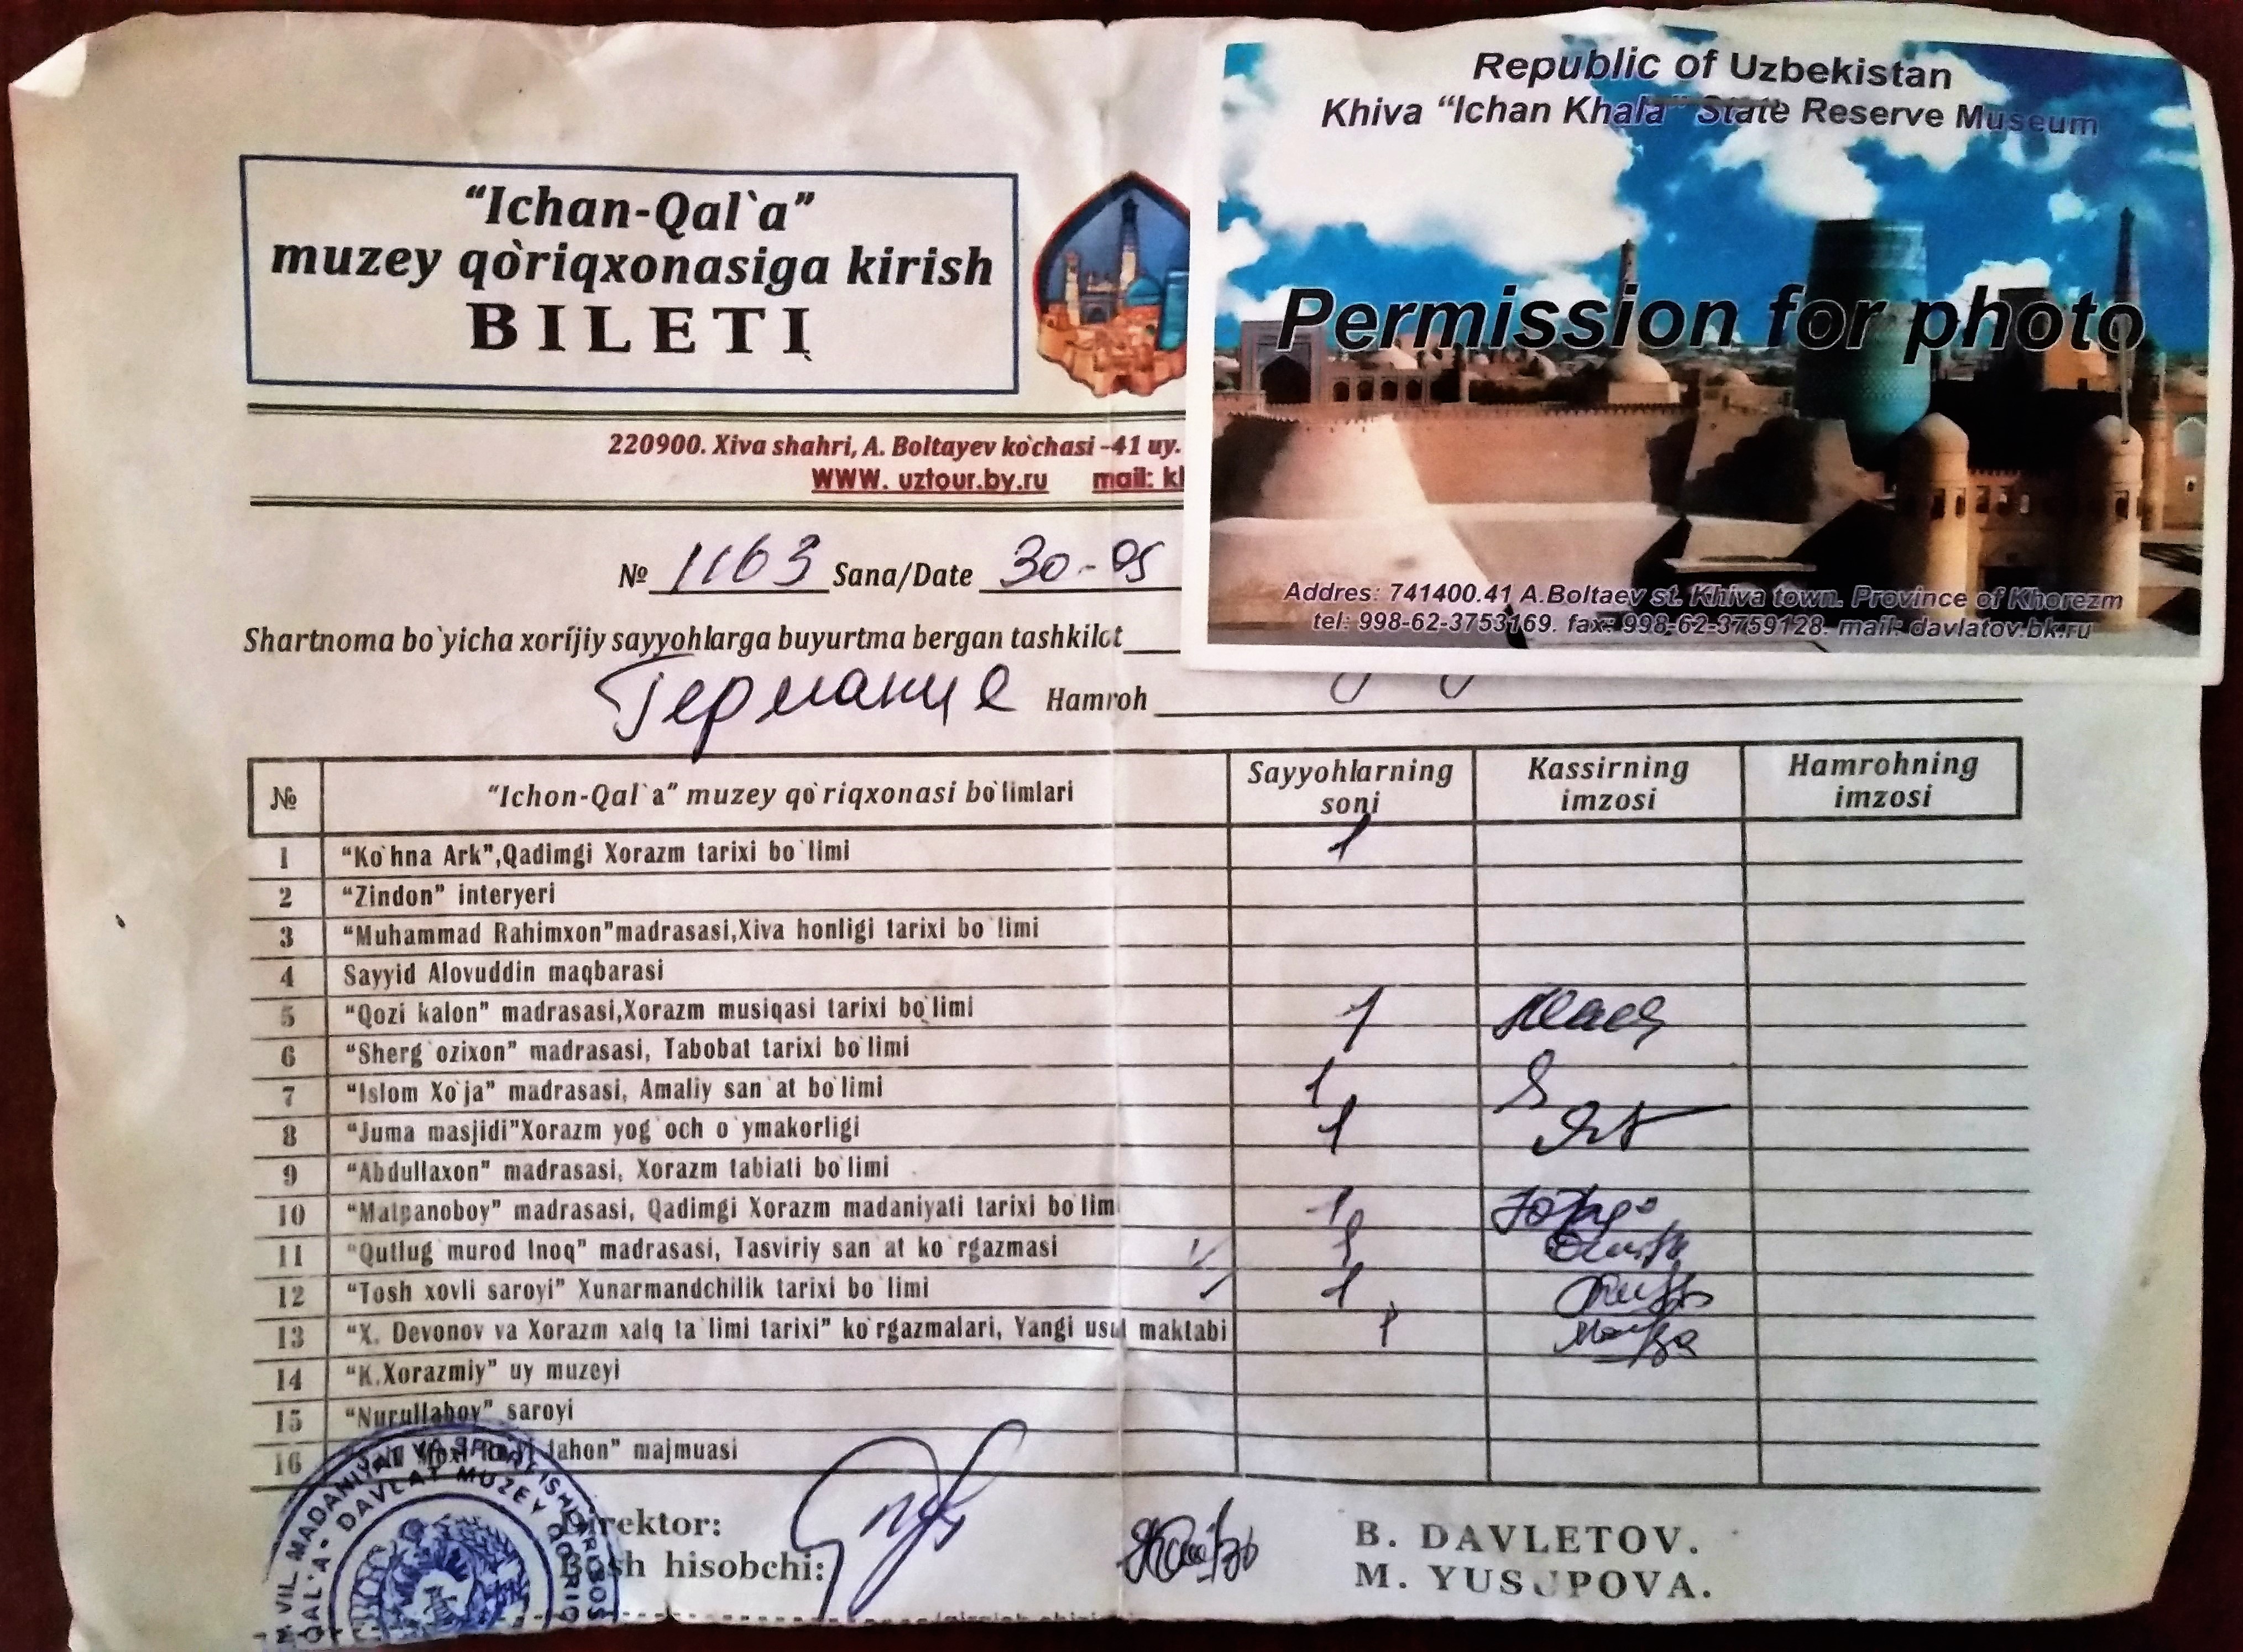 “Ichan-Qal`a”
muzey qo`riqxonasiga kirish
BILETI
220900. Xiva shahri, A. Boltayev ko`chasi -41 uy.
WWW. uztour.by.ru mail:
№ 1163 Sana/Date 30-05
Shartnoma bo`yicha xorijiy sayyohlarga buyurtma bergan tashkilot
Германие Hamroh
Republic of Uzbekistan
Khiva “Ichan Khala” State Reserve Museum
Permission for photo
Addres: 741400.41 A.Boltaev st. Khiva town. Province of Khorezm
tel: 998-62-3753169. fax: 998-62-3759128. mail: davlatov.bk.ru
№ “Ichon-Qal`a” muzey qo`riqxonasi bo`limlari Sayyohlarning soni Kassirning imzosi Hamrohning imzosi
1 “Ko`hna Ark”,Qadimgi Xorazm tarixi bo`limi 1
2 “Zindon” interyeri
3 “Muhammad Rahimxon”madrasasi,Xiva honligi tarixi bo`limi
4 Sayyid Alovuddin maqbarasi
5 “Qozi kalon” madrasasi,Xorazm musiqasi tarixi bo`limi 1
6 “Sherg`ozixon” madrasasi, Tabobat tarixi bo`limi
7 “Islom Xo`ja” madrasasi, Amaliy san`at bo`limi 1
8 “Juma masjidi”Xorazm yog`och o`ymakorligi 1
9 “Abdullaxon” madrasasi, Xorazm tabiati bo`limi
10 “Matpanoboy” madrasasi, Qadimgi Xorazm madaniyati tarixi bo`lim 1
11 “Qutlug`murod Inoq” madrasasi, Tasviriy san`at ko`rgazmasi 1
12 “Tosh xovli saroyi” Xunarmandchilik tarixi bo`limi 1
13 “X. Devonov va Xorazm xalq ta`limi tarixi” ko`rgazmalari, Yangi usul maktabi 1
14 “K.Xorazmiy” uy muzeyi
15 “Nurullaboy” saroyi
16 majmuasi
Direktor: B. DAVLETOV.
Bosh hisobchi: M. YUSUPOVA.
VIL. MADANIYAT VA SPORT ISHLARI BOS
QAL'A" DAVLAT MUZEY QO'RIQ